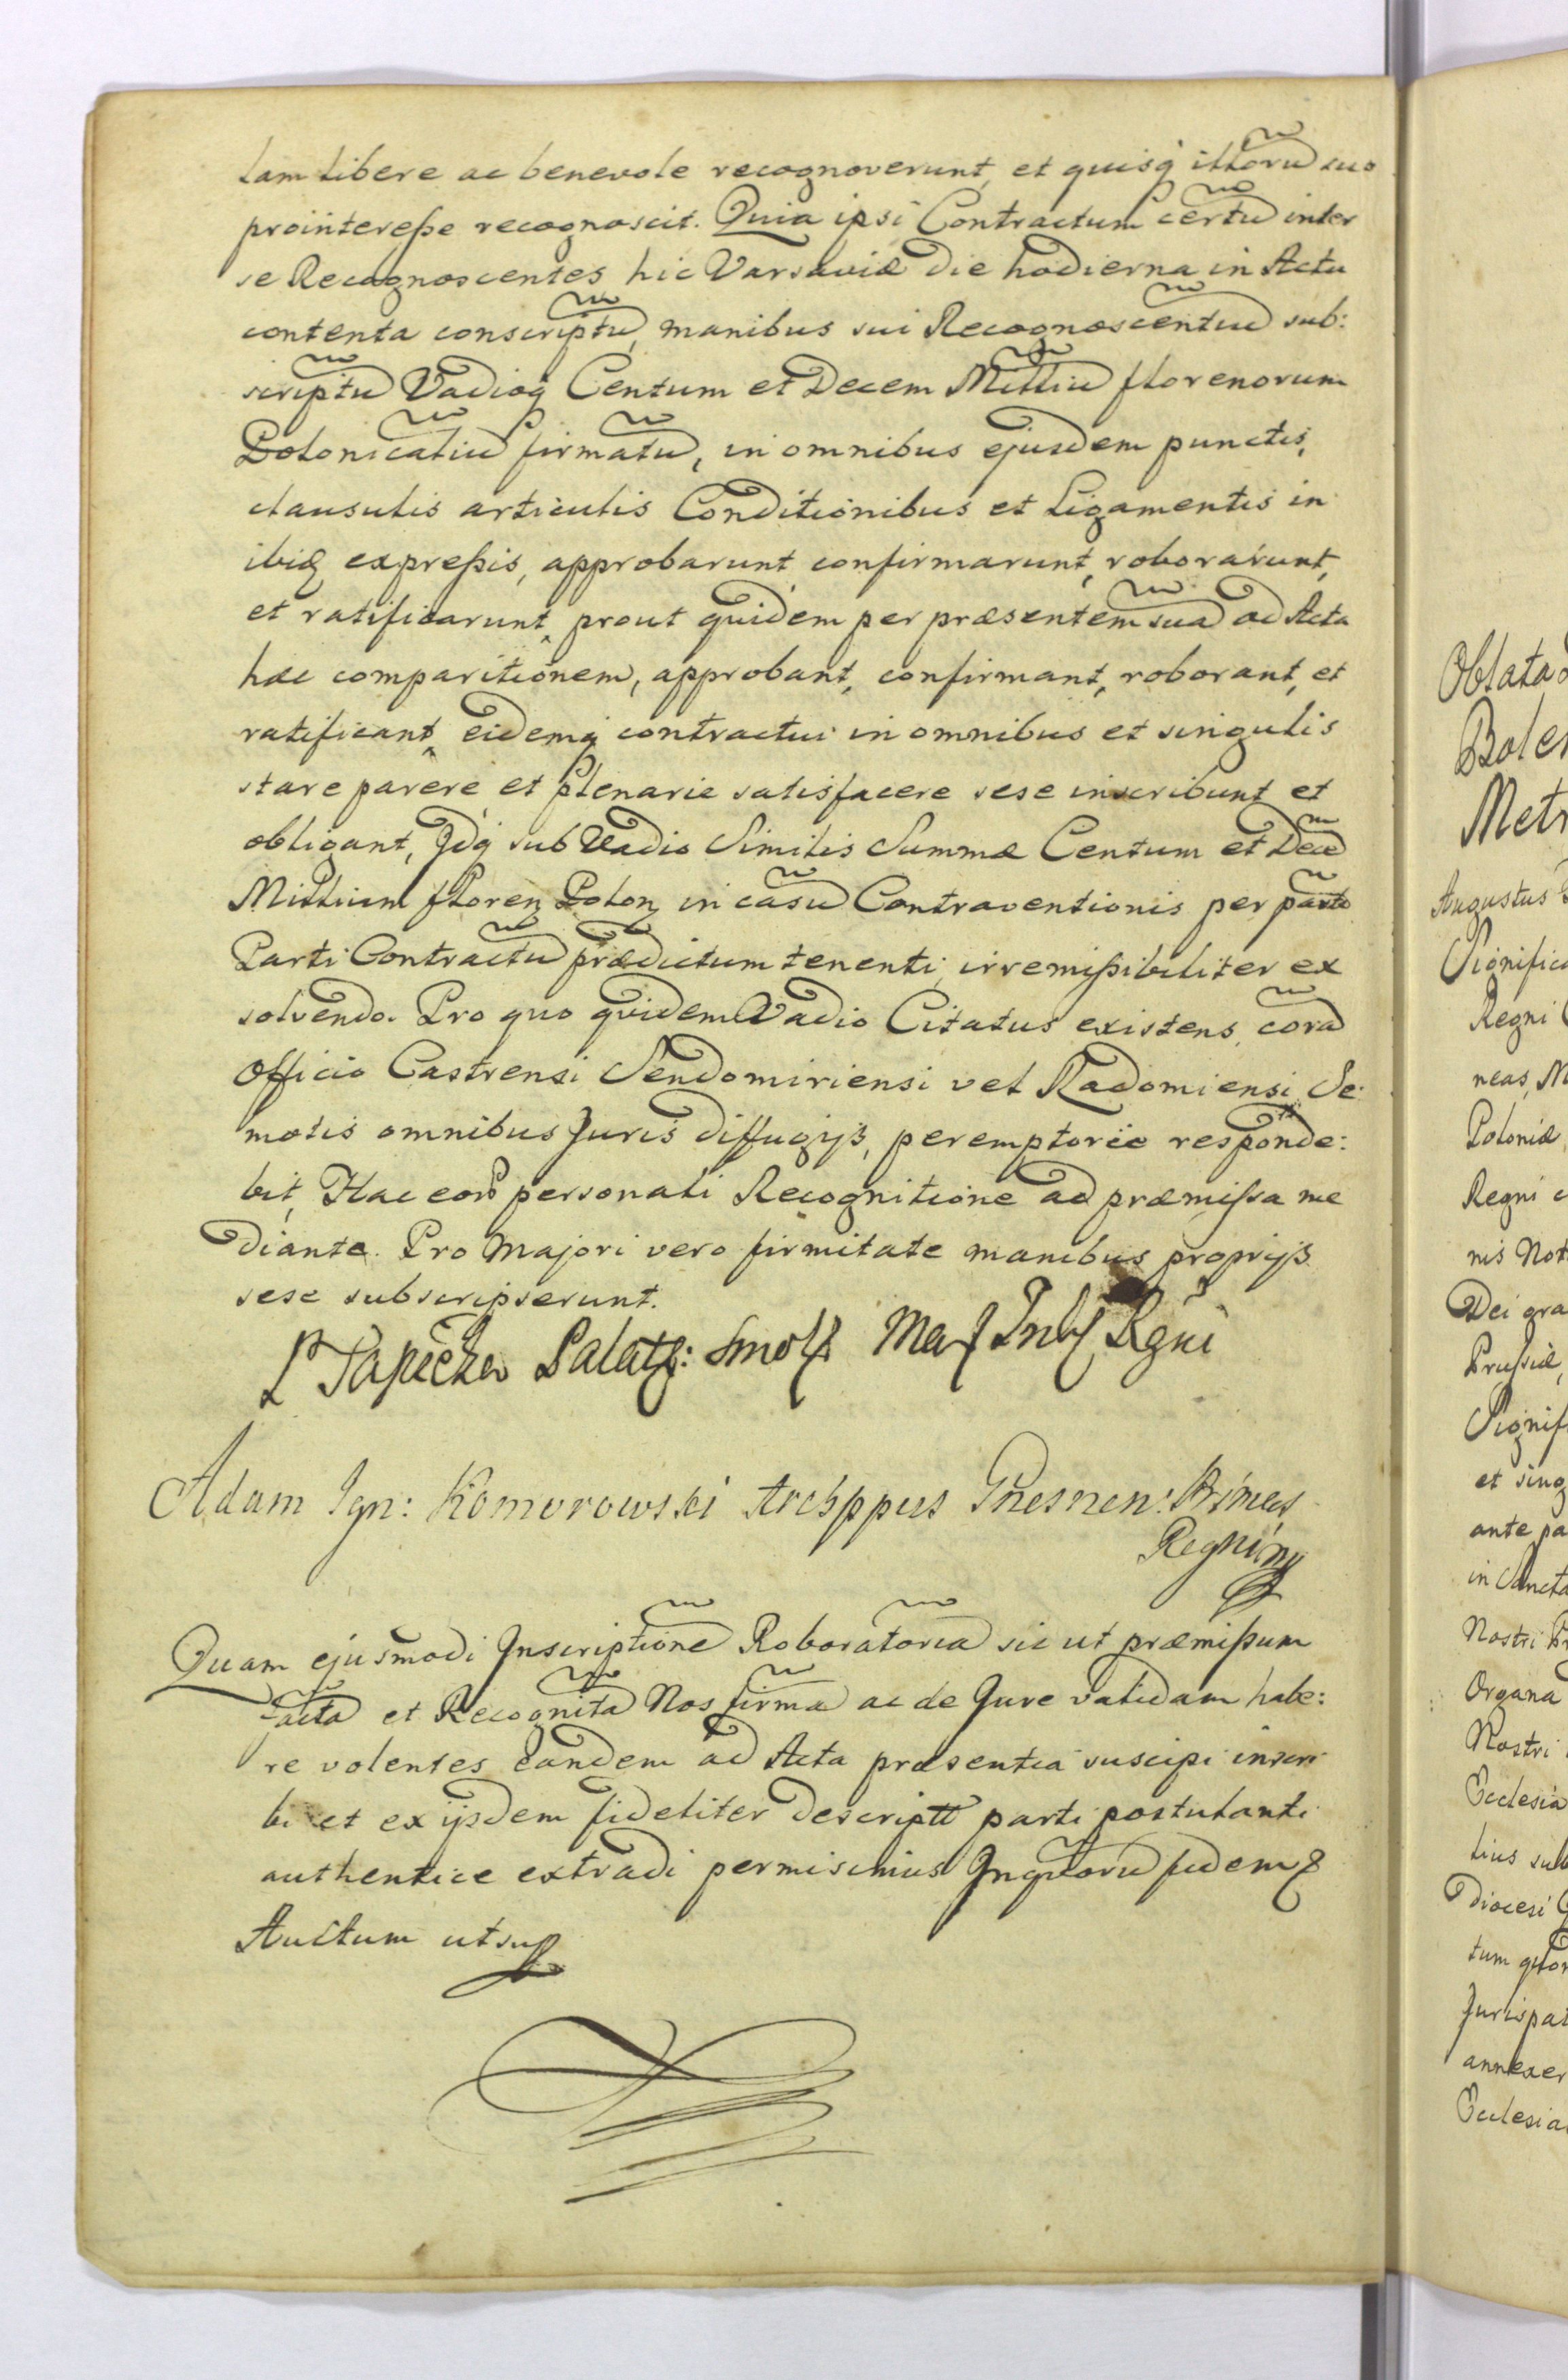 tam libere ac benevole recognoverunt, et quisq̃ illoru̅ suo
prointeresse recognoscit. Quia ipsi Contractum certu̅ inter
se Recognoscentes hic Varsaviæ die hodierna in Actu
contenta conscriptu̅, manibus sui Recognoscentiu̅ sub:
scriptu̅ Vadioq̃ Centum et Decem Milliu̅ florenorum
Polonicaliu̅ firmatu̅, in omnibus ejusdem punctis,
clausulis articulis Conditionibus et Ligamentis in
ibiq̃ expressis, approbarunt, confirmarunt, roborarunt,
et ratificarunt, prout quidem per præsentem sua̅ ad Acta
hæc comparitionem, approbant, confirmant, roborant, et
ratificant, eidemq̃ contractui in omnibus et singulis
stare parere et plenarie satisfacere sese inscribunt et
obligant, Idq̃ sub Vadio Similis Summæ Centum et Dece̅
Millium floren Polon in casu̅ Contraventionis per parte̅
Parti Contractu̅ prædictum tenenti, irremissibiliter ex
solvendo. Pro quo quidem Vadio Citatus existens, cora̅
Officio Castrensi Sendomiriensi vel Radomiensi, Se:
motis omnibus Juris diffugijs, peremptorie responde:
bit, Hac eor̃ personali Recognitione ad præmissa me
diante. Pro Majori vero firmitate manibus proprijs
sese subscripserunt.
P Sapieha Palat: Smol Regni
Adam Ign: Komorowski Archppus Gnesnen: Primas
Regni mp
Quam ejusmodi Inscriptione̅ Roboratoria̅ sic ut præmissum
facta̅ et Recognita̅ Nos firma̅ ac de Jure validam habe:
re volentes eandem ad Acta præsentia suscipi inscri
bi et ex ijsdem fideliter descriptt parti postulanti
authentice extradi permisimus Inqtoru̅ fidem
Auctum ut sup
Oblata
Metr
Augustus
Significa
Regni
neas, M
Poloniæ
Regni
nis Not
Dei gra
Prussiæ,
Signif
et sing
ante pa
in Sancta
Nostri Pr
Organa
Nostri
Ecclesia
lius sub
diocesi
tum
Jurispat
annexer
Ecclesia